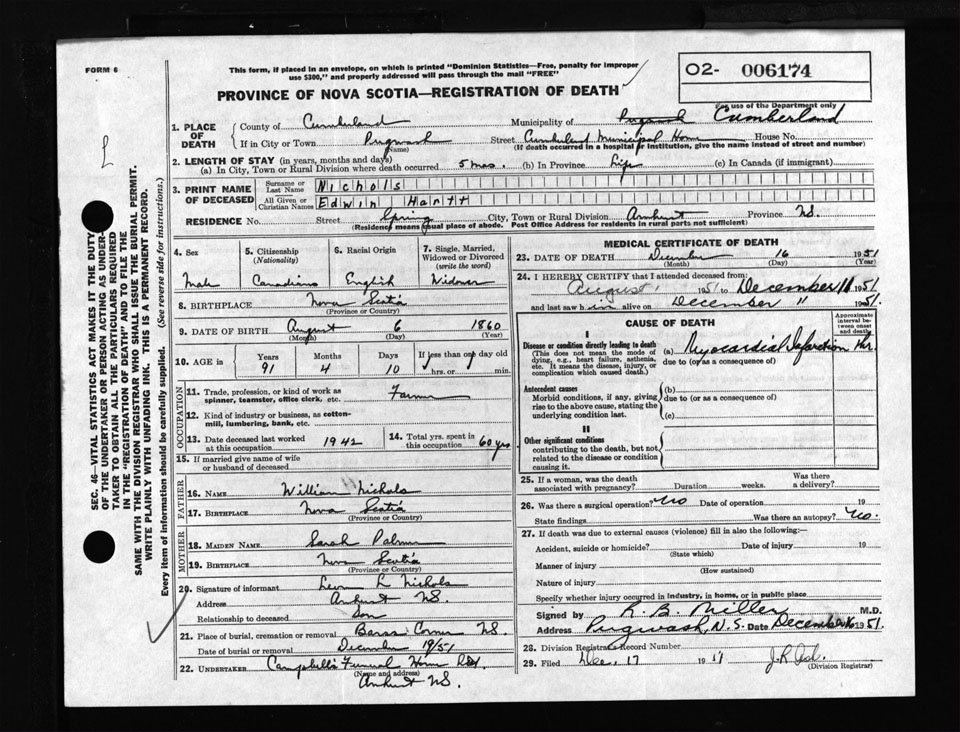 FORM 6
This form, if placed in an envelope, on which is printed "Dominion Statistics—Free, penalty for improper
use $300," and properly addressed will pass through the mail "FREE"
O2- 006174
PROVINCE OF NOVA SCOTIA—REGISTRATION OF DEATH
For use of the Department only
1. PLACE OF DEATH
County of Cumberland Municipality of Pugwash Cumberland
If in City or Town Pugwash Street Cumberland Municipal Home House No.
(Name) (If death occurred in a hospital or institution, give the name instead of street and number)
2. LENGTH OF STAY (in years, months and days)
(a) In City, Town or Rural Division where death occurred 5 mos. (b) In Province Life (c) In Canada (if immigrant)
3. PRINT NAME OF DECEASED
Surname or Last Name Nichols
All Given or Christian Names Edwin Hartt
RESIDENCE No. Street Spring City, Town or Rural Division Amherst Province N.S.
(Residence means usual place of abode. Post Office Address for residents in rural parts not sufficient)
4. Sex Male
5. Citizenship (Nationality) Canadian
6. Racial Origin English
7. Single, Married, Widowed or Divorced (write the word) Widower
8. BIRTHPLACE Nova Scotia
(Province or Country)
9. DATE OF BIRTH August 6 1860
(Month) (Day) (Yr.)
10. AGE in Years 91 Months 4 Days 10 If less than one day old hrs. or min.
OCCUPATION
11. Trade, profession, or kind of work as spinner, teamster, office clerk, etc. Farmer
12. Kind of industry or business, as cotton-mill, lumbering, bank, etc.
13. Date deceased last worked at this occupation 1942
14. Total yrs. spent in this occupation 60 yrs
15. If married give name of wife or husband of deceased
FATHER
16. Name William Nichols
17. Birthplace Nova Scotia
(Province or Country)
MOTHER
18. MAIDEN NAME Sarah Palmer
19. BIRTHPLACE Nova Scotia
(Province or Country)
20. Signature of informant Leon L Nichols
Address Amherst N.S.
Relationship to deceased Son
21. Place of burial, cremation or removal Corner N.S.
Date of burial or removal December 19/51
22. UNDERTAKER Campbell's Funeral Home
(Name and address)
Amherst N.S.
MEDICAL CERTIFICATE OF DEATH
23. DATE OF DEATH December 16 1951
(Month) (Day) (Year)
24. I HEREBY CERTIFY that I attended deceased from:
August 1951 to December 1951
and last saw him alive on December 11 1951.
CAUSE OF DEATH
Approximate interval between onset and death
I
Disease or condition directly leading to death (a) Myocardial Infarction hr.
(This does not mean the mode of dying, e.g., heart failure, asthenia, etc. It means the disease, injury, or complication which caused death.)
due to (or as a consequence of)
Antecedent causes (b)
Morbid conditions, if any, giving rise to the above cause, stating the underlying condition last.
due to (or as a consequence of)
(c)
II
Other significant conditions
contributing to the death, but not related to the disease or condition causing it.
25. If a woman, was the death associated with pregnancy? Duration weeks. Was there a delivery?
26. Was there a surgical operation? No Date of operation 19
State findings Was there an autopsy? No.
27. If death was due to external causes (violence) fill in also the following:—
Accident, suicide or homicide? Date of injury 19
(State which)
Manner of injury
(How sustained)
Nature of injury
Specify whether injury occurred in industry, in home, or in public place
Signed by R. B. Miller M.D.
Address Pugwash, N.S. Date December 16 1951.
28. Division Registrar's Record Number
29. Filed Dec. 17 19
(Division Registrar)
SEC. 46—VITAL STATISTICS ACT MAKES IT THE DUTY
OF THE UNDERTAKER OR PERSON ACTING AS UNDER-
TAKER TO OBTAIN ALL THE PARTICULARS REQUIRED
IN THE "REGISTRATION OF DEATH" AND TO FILE THE
SAME WITH THE DIVISION REGISTRAR WHO SHALL ISSUE THE BURIAL PERMIT.
WRITE PLAINLY WITH UNFADING INK. THIS IS A PERMANENT RECORD.
Every item of information should be carefully supplied. (See reverse side for instructions.)